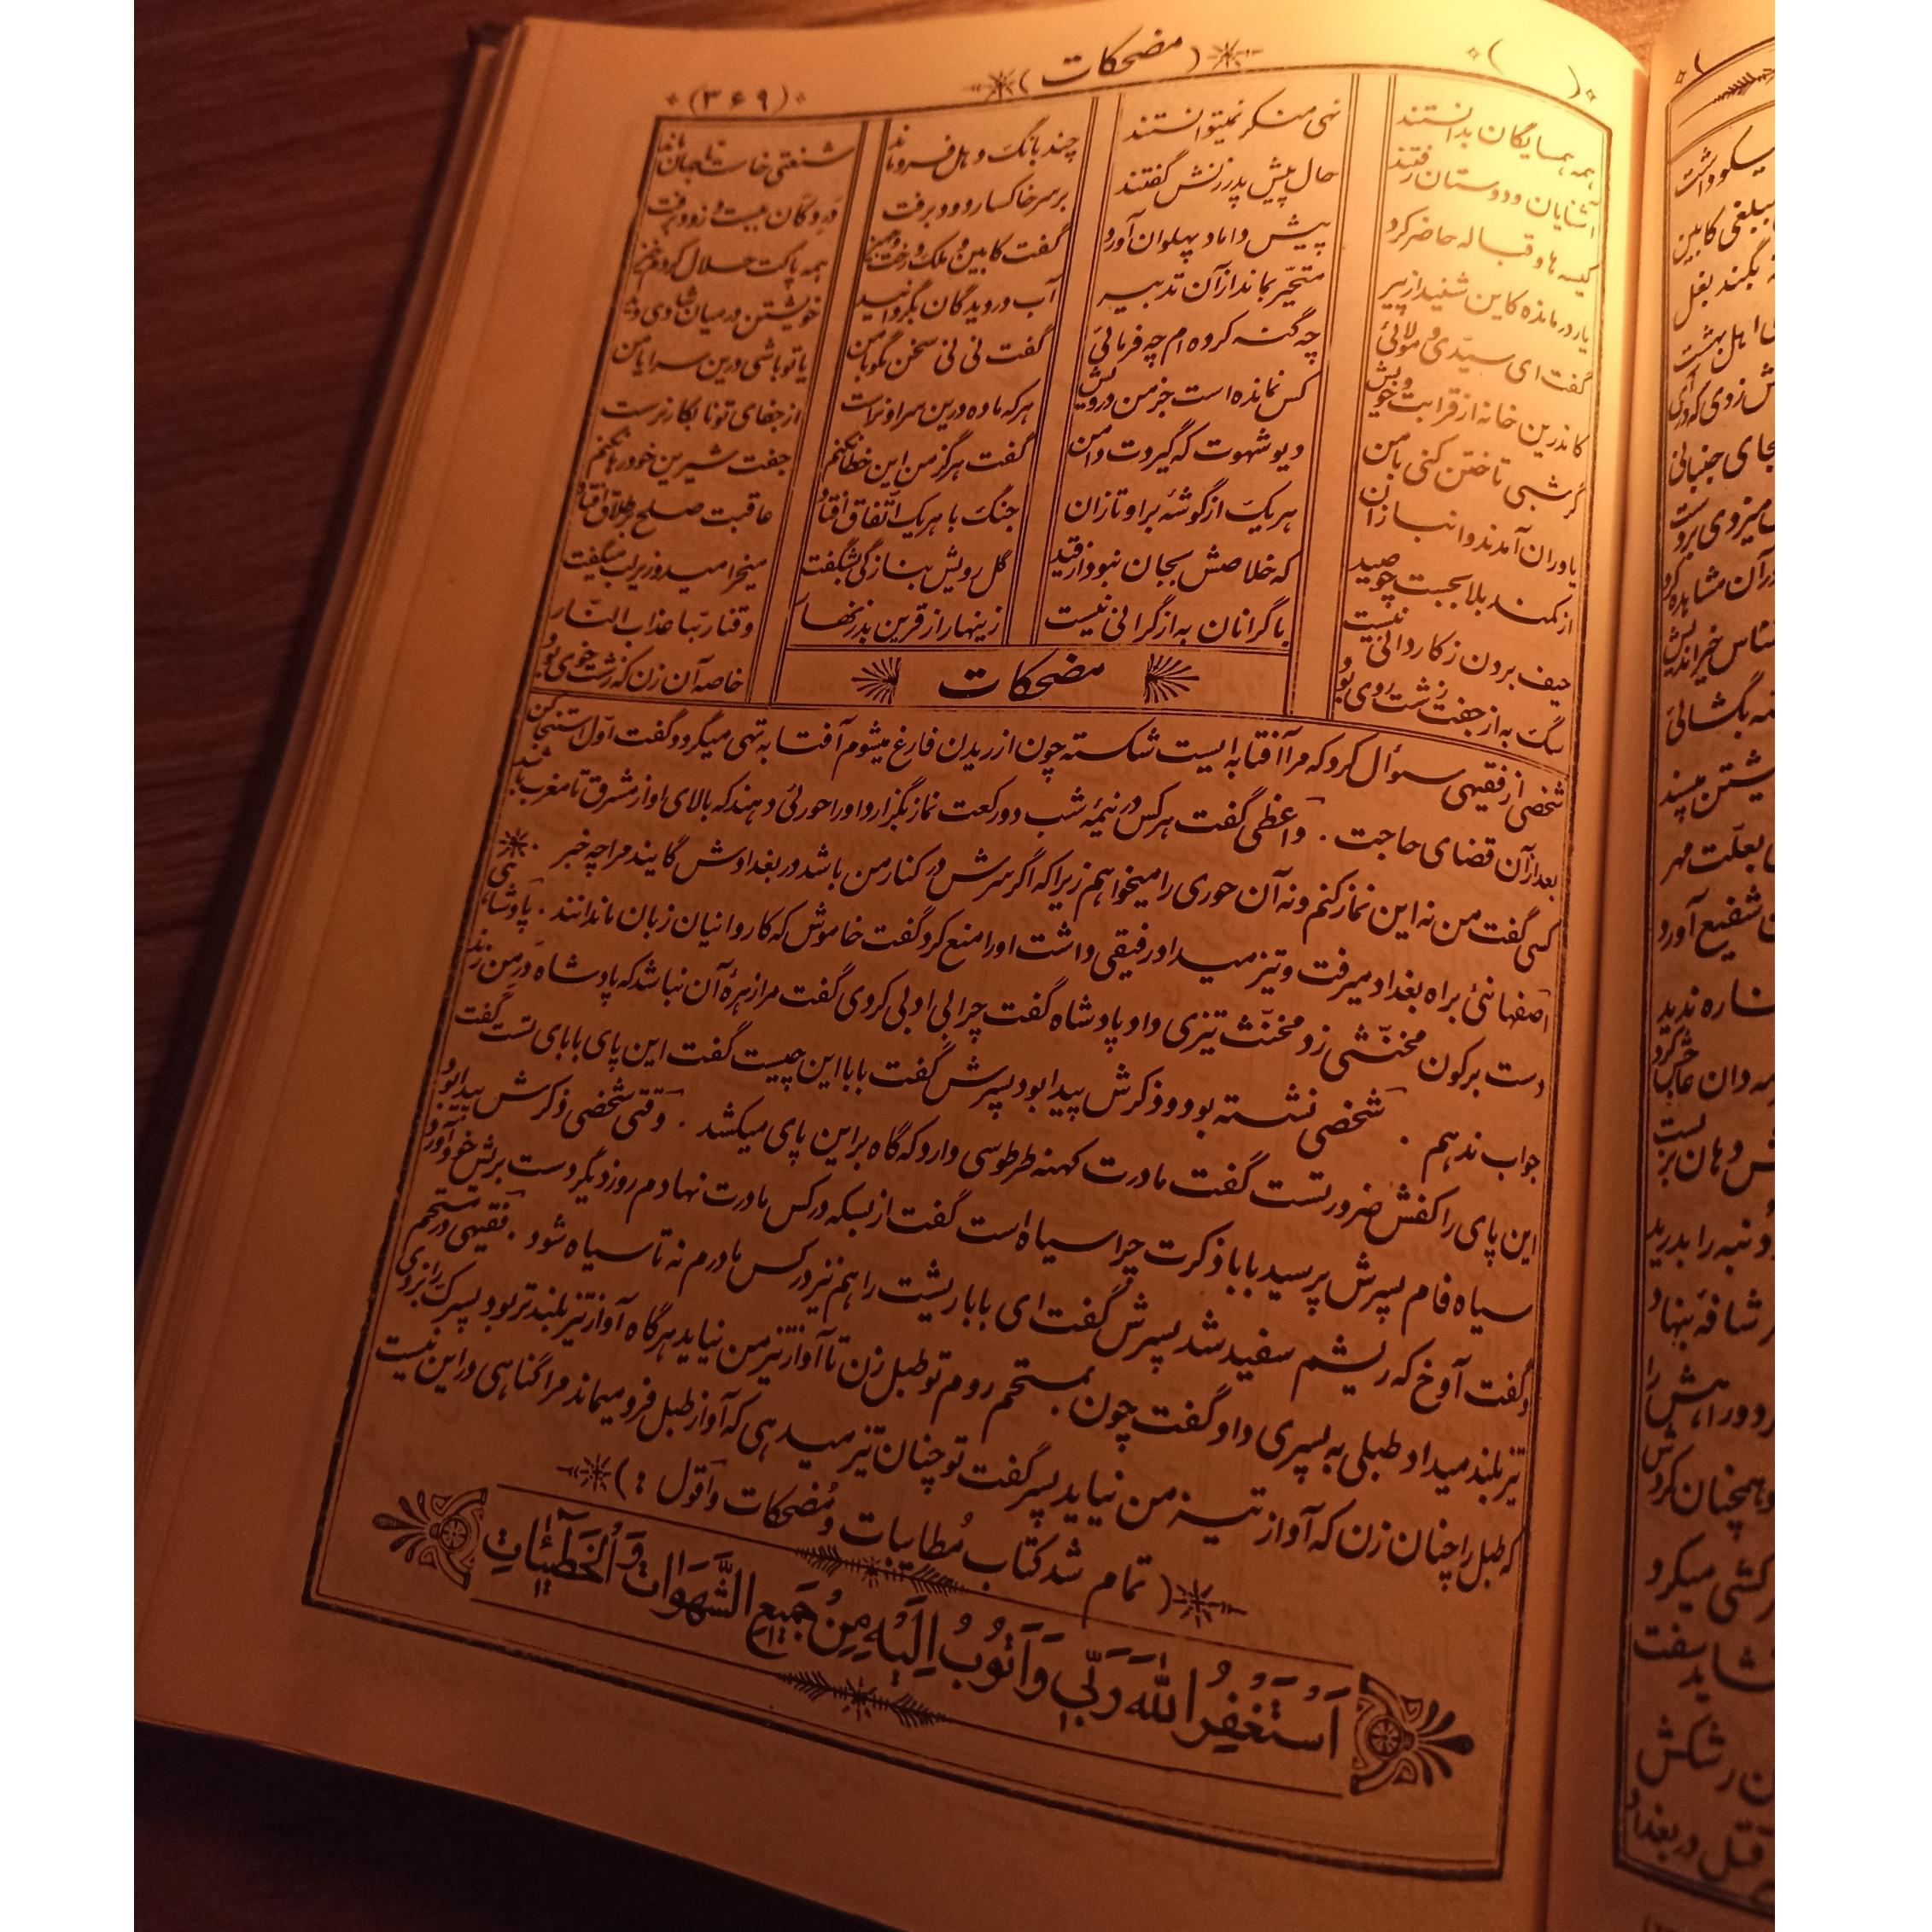 (مضحکات)
(۳۶۹)
همه همسایگان بدانستند
نهی منکر نمیتوانستند
چند بانگ و هل فرو ماند
شنعتی خاست
آشنایان و دوستان رفتند
حال پیش پدر زنش گفتند
بر سر خاکسار دود برفت
در دکان بیست و زود برفت
کیسه ها و قباله حاضر کرد
پیش داماد پهلوان آورد
گفت کابین و ملک و رخت و جهیز
همه پاکت حلال کردم خیز
یار درمانده کاین شنید از پیر
متحیر بماند از آن تدبیر
آب در دیدگان بگردانید
خویشتن در میان
گفت ای سیدی و مولائی
چه گنه کرده ام چه فرمائی
گفت نی نی سخن مگو با من
یا تو باشی درین سرا یا من
کاندرین خانه از قرابت و خویش
کس نمانده است جز من درویش
هر که ماده درین سرا و نر است
از جفای تو نابکار نرست
گر شبی تاختن کنی با من
دیو شهوت که گیردت دامن
گفت هرگز من این خطا نکنم
جفت شیرین خود رها نکنم
یاوران آمدند و انبازان
هر یک از گوشهٔ بر او تازان
جنگ با هر یک اتفاق افتاد
عاقبت صلح بر طلاق افتاد
از کمند بلا بجست چو صید
که خلاصش بجان نبود از قید
گل رویش بتازگی بشکفت
میخرامید و زیر لب میگفت
حیف بردن ز کاردانی نیست
با گرانان به از گرانی نیست
زینهار از قرین بد زنهار
وقنا ربنا عذاب النار
سگ به از جفت زشت روی بود
خاصه آن زن که زشت خوی بود
مضحکات
شخصی از فقیهی سوأل کرد که مرا آفتابه ایست شکسته چون از ریدن فارغ میشوم آفتابه تهی میگردد گفت اول استنجا کن
بعد از آن قضای حاجت . واعظی گفت هر کس در نیمهٔ شب دو رکعت نماز بگزارد او را حورئی دهند که بالای او از مشرق تا مغرب باشد
کسی گفت من نه این نماز کنم و نه آن حوری را میخواهم زیرا که اگر سرش در کنار من باشد در بغدادش گایند مرا چه خبر
اصفهانئی براه بغداد میرفت و تیز میداد رفیقی داشت او را منع کرد گفت خاموش که کاروانیان زبان ما ندانند . پادشاهی
دست بر کون مخنثی زد مخنث تیزی داد پادشاه گفت چرا بی ادبی کردی گفت مرا زهرهٔ آن نباشد که پادشاه در من زند
جواب ندهم . شخصی نشسته بود و ذکرش پیدا بود پسرش گفت بابا این چیست گفت این پای بابای تست گفت
این پای را کفش ضرور تست گفت مادرت کهنه طرطوسی دارد که گاه بر این پای میکشد . وقتی شخصی ذکرش پیدا بود
سیاه فام پسرش پرسید بابا ذکرت چرا سیاه است گفت از بسکه در کس مادرت نهادم روز دیگر دست بریش خود آورد
و گفت آوخ که ریشم سفید شد پسرش گفت ای بابا ریشت را هم نیز در کس مادرم نه تا سیاه شود . فقیهی در مستحم
تیز بلند میداد طبلی به پسری داد و گفت چون بمستحم روم تو طبل زن تا آواز تیز من نیاید هرگاه آواز تیز بلند تر بود پسرک را
که طبل را چنان زن که آواز تیز من نیاید پسر گفت تو چنان تیز میدهی که آواز طبل فرو میماند مرا گناهی در این نیست
(تمام شد کتاب مُطایبات و مُضحکات و اقول :)
اَسْتَغْفِرُ اللّٰهَ رَبّی وَ اَتُوبُ اِلَیْهِ مِنْ جَمیعِ الشَّهَوَاتِ وَ الْخَطیئَاتِ